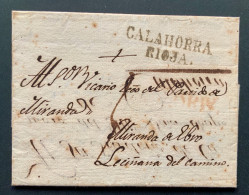 CALAHORRA
RIOJA.
Al Sor. Vicario Ecco. del Partido de
Miranda
Miranda de Ebro
Leciñana del camino.